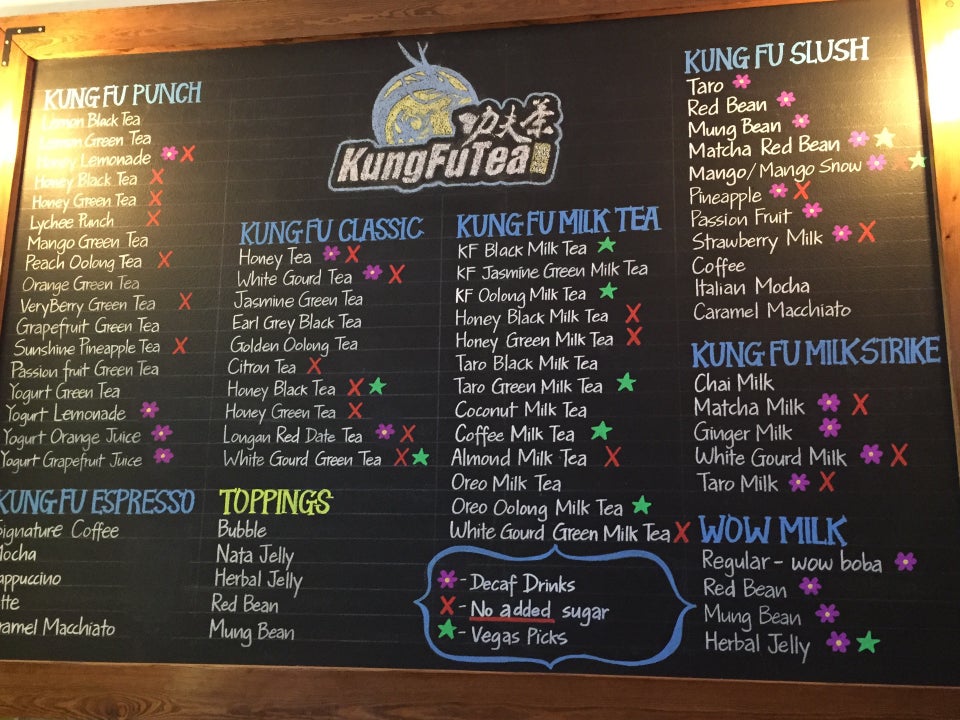 KUNG FU PUNCH
Lemon Black Tea
Lemon Green Tea
Honey Lemonade X
Honey Black Tea X
Honey Green Tea X
Lychee Punch X
Mango Green Tea
Peach Oolong Tea X
Orange Green Tea
VeryBerry Green Tea X
Grapefruit Green Tea
Sunshine Pineapple Tea X
Passion fruit Green Tea
Yogurt Green Tea
Yogurt Lemonade
Yogurt Orange Juice
Yogurt Grapefruit Juice
KUNG FU ESPRESSO
Signature Coffee
Mocha
appuccino
tte
ramel Macchiato
功夫茶
KungFuTea
KUNG FU CLASSIC
Honey Tea X
White Gourd Tea X
Jasmine Green Tea
Earl Grey Black Tea
Golden Oolong Tea
Citron Tea X
Honey Black Tea X
Honey Green Tea X
Longan Red Date Tea X
White Gourd Green Tea X
TOPPINGS
Bubble
Nata Jelly
Herbal Jelly
Red Bean
Mung Bean
KUNG FU MILK TEA
KF Black Milk Tea
KF Jasmine Green Milk Tea
KF Oolong Milk Tea
Honey Black Milk Tea X
Honey Green Milk Tea X
Taro Black Milk Tea
Taro Green Milk Tea
Coconut Milk Tea
Coffee Milk Tea
Almond Milk Tea X
Oreo Milk Tea
Oreo Oolong Milk Tea
White Gourd Green Milk Tea X
- Decaf Drinks
X - No added sugar
- Vegas Picks
KUNG FU SLUSH
Taro
Red Bean
Mung Bean
Matcha Red Bean
Mango/Mango Snow
Pineapple X
Passion Fruit
Strawberry Milk X
Coffee
Italian Mocha
Caramel Macchiato
KUNG FU MILK STRIKE
Chai Milk
Matcha Milk X
Ginger Milk
White Gourd Milk X
Taro Milk X
WOW MILK
Regular - wow boba
Red Bean
Mung Bean
Herbal Jelly